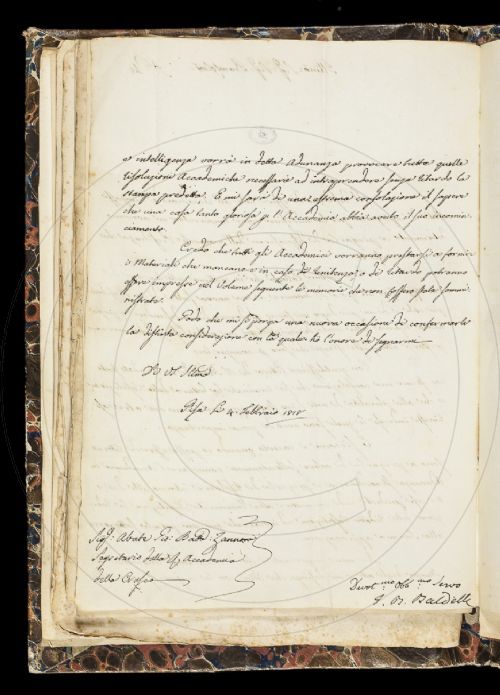 e intelligenza vorrà in detta Adunanza provocare tutte quelle
risoluzioni Accademiche necessarie ad intraprendere senza ritardo la
stampa predetta. E mi sarà di una estrema consolazione il sapere
che una cosa tanto gloriosa p l'Accademia abbia avuto il suo incomin
ciamento.
Credo che tutti gli Accademici vorranno prestarsi a fornir
i Materiali che mancano e in caso di lentezza o di ritardo potranno
essere impresse nel Volume seguente le memorie che non fossero state sommi
nistrate.
Godo che mi si porga una nuova occasione di confermarle
la distinta considerazione con la quale ho l'onore di segnarmi
Di VS Illma
Pisa li 4. Febbraio 1818
Sigr: Abate Gio: Batt: Zannoni
Segretario della Accademia
della Crusca
Devotmo Obbmo Servo
G. B. Baldelli